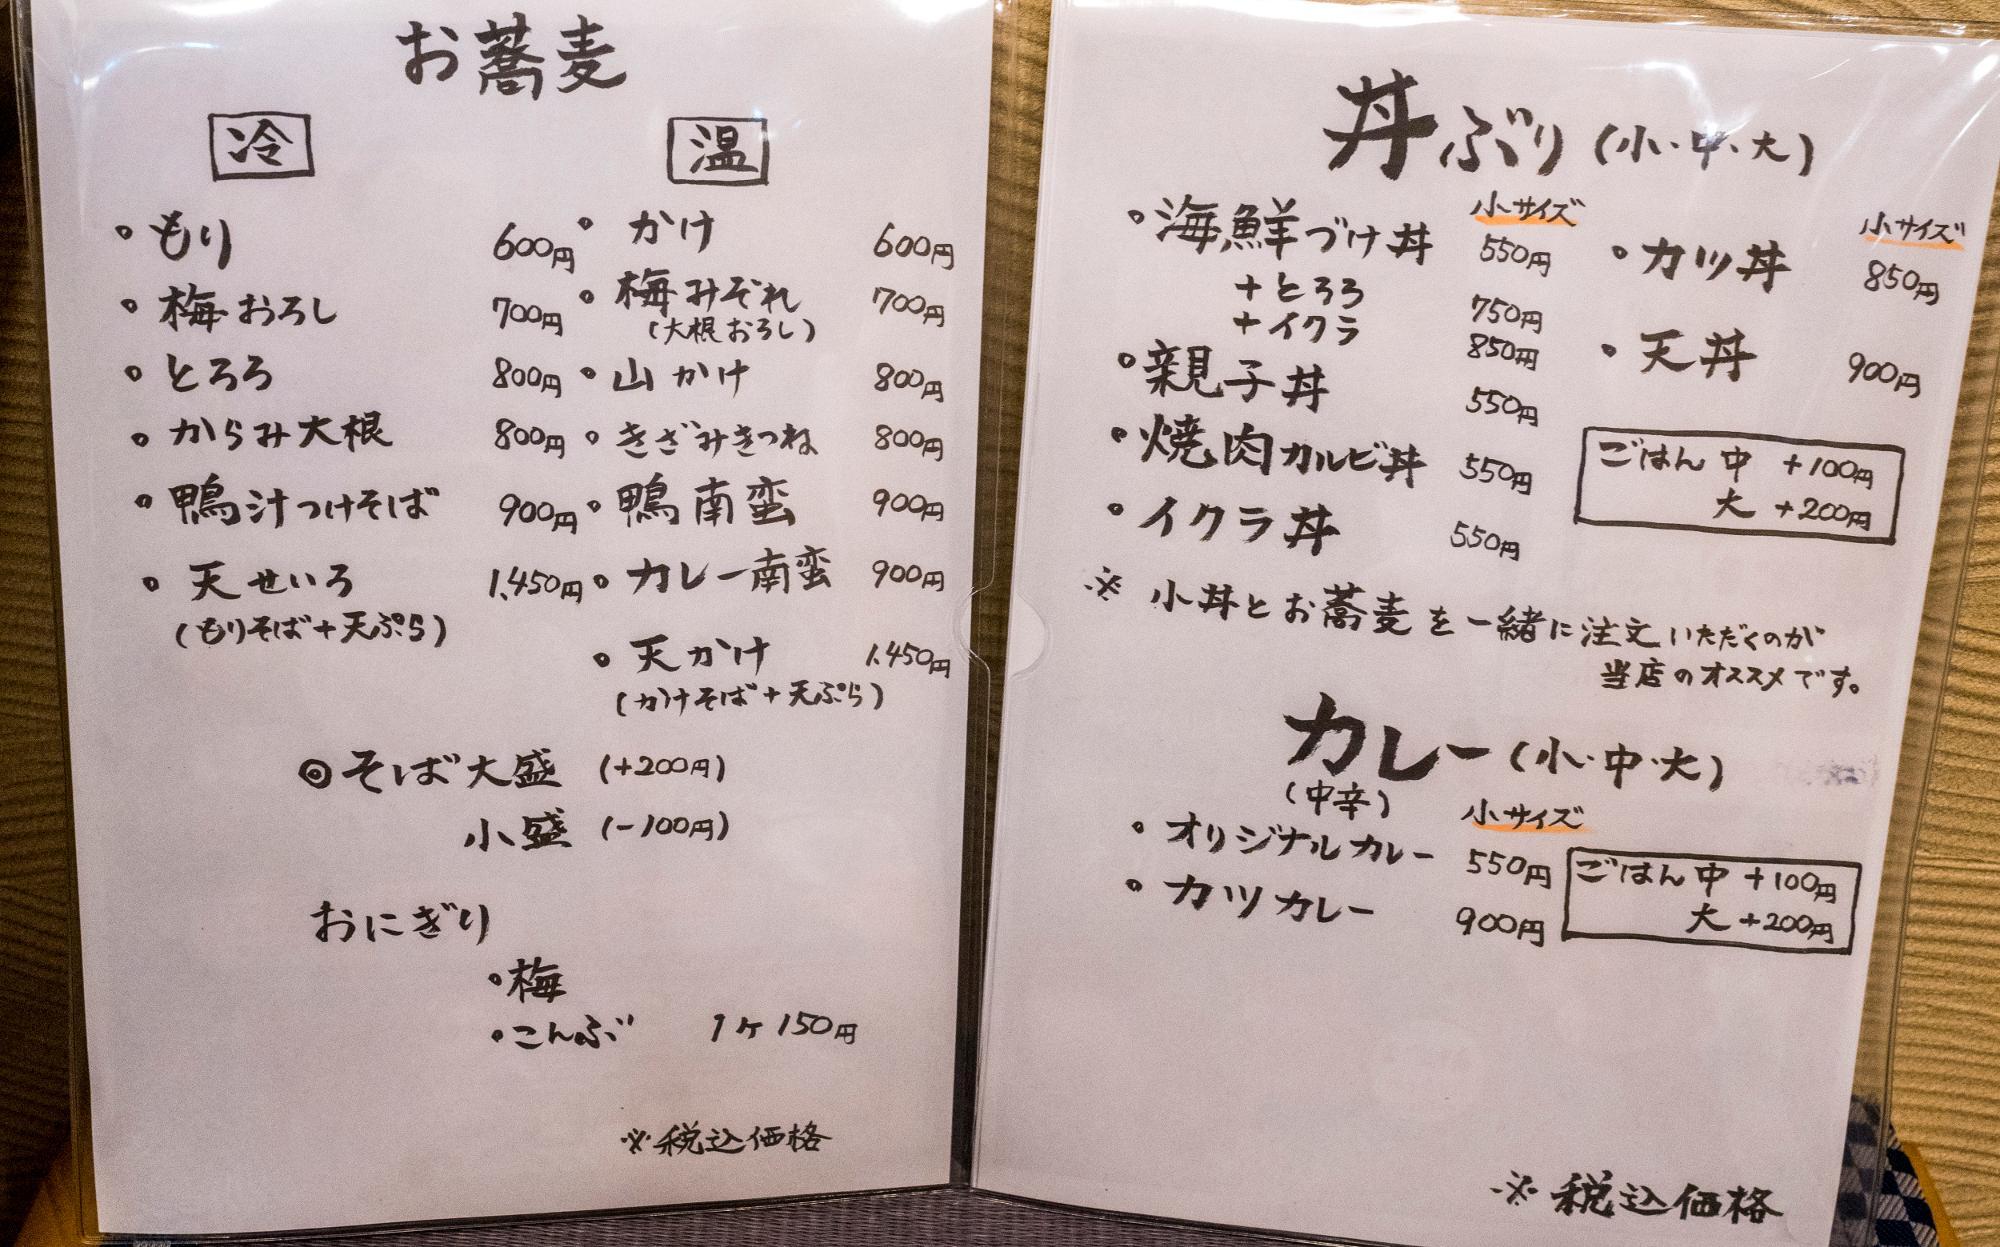 お蕎麦
冷
・もり 600円
・梅おろし 700円
・とろろ 800円
・からみ大根 800円
・鴨汁つけそば 900円
・天せいろ 1,450円
(もりそば+天ぷら)
温
・かけ 600円
・梅みぞれ 700円
(大根おろし)
・山かけ 800円
・きざみきつね 800円
・鴨南蛮 900円
・カレー南蛮 900円
・天かけ 1,450円
(かけそば+天ぷら)
◎そば大盛 (+200円)
小盛 (-100円)
おにぎり
・梅
・こんぶ 1ヶ 150円
※税込価格
丼ぶり(小・中・大)
小サイズ
・海鮮づけ丼 550円
+とろろ 750円
+イクラ 850円
・親子丼 550円
・焼肉カルビ丼 550円
・イクラ丼 550円
小サイズ
・カツ丼 850円
・天丼 900円
ごはん 中 +100円
大 +200円
※ 小丼とお蕎麦を一緒に注文いただくのが
当店のオススメです。
カレー(小・中・大)
(中辛)
小サイズ
・オリジナルカレー 550円
・カツカレー 900円
ごはん 中 +100円
大 +200円
※税込価格